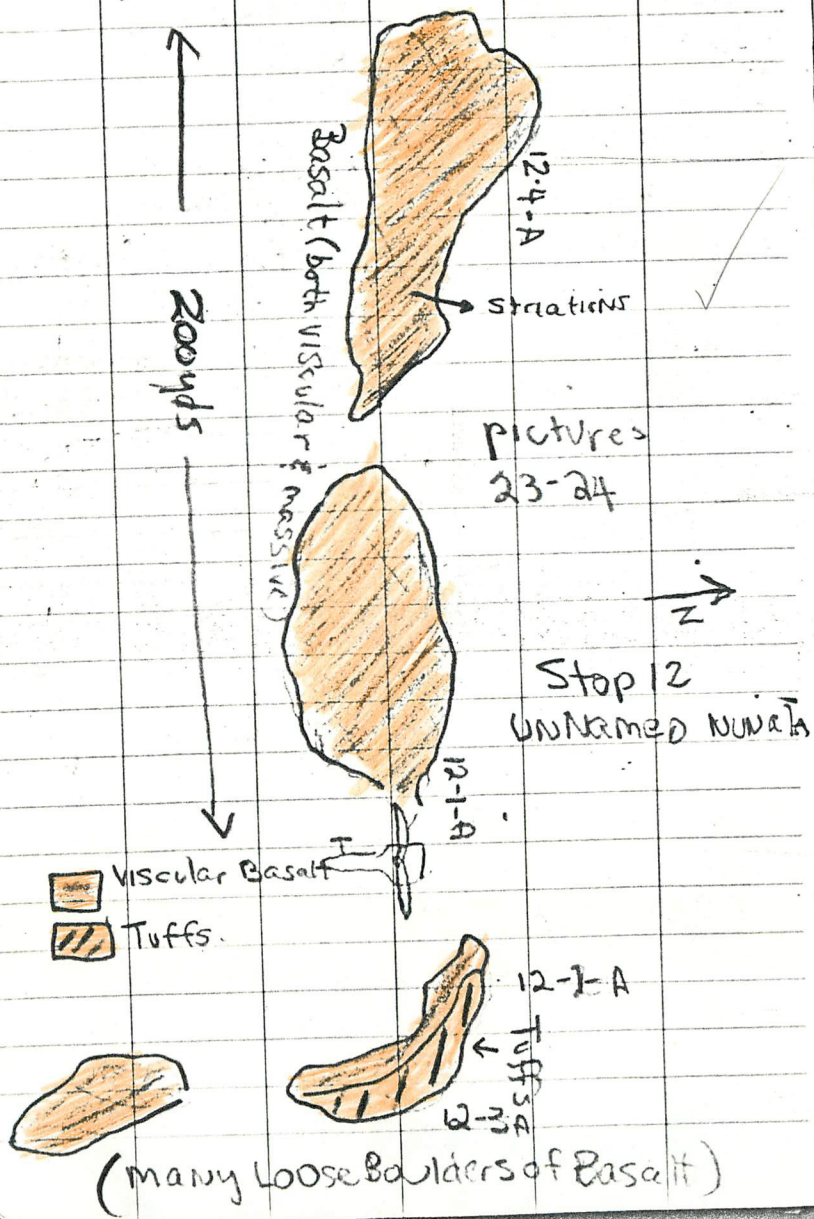 12-4-A
Basalt (both viscular & massive)
striations
200yds
pictures
23-24
N
Stop 12
UNNamed NuNaTa
12-1-A
Viscular Basalt
Tuffs.
12-1-A
Tuffs
12-3A
(many Loose Boulders of Basalt)